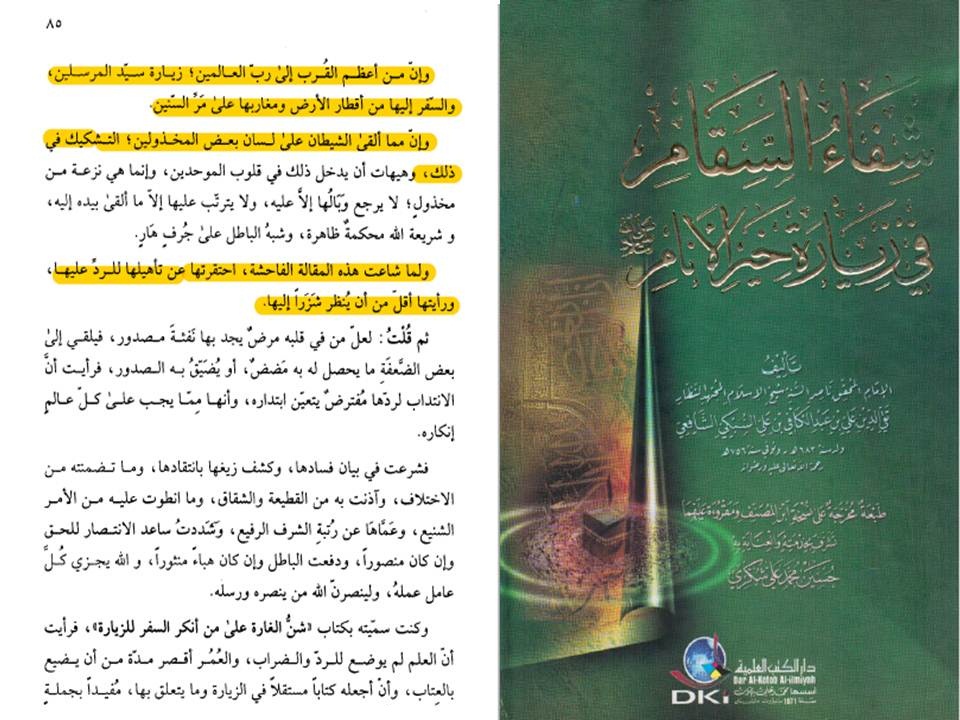 ٨٥
وإنّ مـن أعظـم القُـرب إلىٰ ربّ العـالمين؛ زيـارة سيّـد المرسـلين،
والسّفر إليها من أقطار الأرض ومغاربها علىٰ مَرِّ السّنين.
وإنّ مما ألقىٰ الشيطان علىٰ لسان بعض المخذولين؛ التشكيك في
ذلك، وهيهات أن يدخل ذلك في قلوب الموحدين، وإنما هي نزعة من
مخذولٍ؛ لا يرجع وَبَالُها إلاَّ عليه، ولا يترتّب عليها إلاّ ما ألقىٰ بيده إليه،
و شريعة الله محكمةٌ ظاهرة، وشبهُ الباطل علىٰ جُرفٍ هَارٍ.
ولما شاعت هذه المقالة الفاحشة، احتقرتها عن تأهيلها للـردِّ عليهـا،
ورأيتها أقلّ من أن يُنظر شَزَراً إليها.
ثم قُلْتُ: لعلّ من في قلبه مرضٌ يجد بها نَفثةَ مـصدور، فيلقي إلىٰ
بعض الضَّعفَةِ ما يحصل له به مَضضٌ، أو يُضَيّقُ بـه الـصدور، فرأيت أنَّ
الانتداب لردّها مُفترضٌ يتعيّن ابتداره، وأنهـا مِمّا يجب علـىٰ كـلّ عـالمٍ
إنكاره.
فشرعت في بيان فسادها، وكشف زيغها بانتقادها، ومـا تـضمنته مـن
الاختلاف، وآذنت به من القطيعة والشقاق، وما انطوت عليـه مـن الأمـر
الشنيع، وعَمَّاها عن رُتبةِ الشرف الرفيع، وشَدَّدتُ ساعد الانتـصار للحق
وإن كان منصوراً، ودفعت الباطل وإن كان هباءً منثوراً، و الله يجـزي كُـلَّ
عامل عملهُ، ولينصرنّ الله من ينصره ورسله.
وكنت سمّيته بكتاب «شنُّ الغارة علىٰ من أنكر السفر للزيارة»، فرأيت
أنّ العلم لم يوضـع للـردِّ والـضراب، والعُمُـر أقـصر مـدّة مـن أن يـضيع
بالعِتاب، وأنْ أجعله كتاباً مستقلاً في الزيارة وما يتعلق بها، مُقيداً بجملةٍ
شِفَاءُ السِّقَامِ
فِي زِيَارَةِ خَيْرِ الأَنَامِ ﷺ
تَأْلِيفُ
الإمام المحقق ناصر السنة شيخ الإسلام المجتهد النظار
تقي الدين علي بن عبد الكافي بن علي السبكي الشافعي
ولد سنة ٦٨٣هـ وتوفي سنة ٧٥٦هـ
رحمة الله تعالى عليه ورضوانه
طبعة مخرجة على نسخة ابن المصنف ومقروءة عليهما
تشرف بخدمته والعناية به
حسين محمد علي شكري
دار الكتب العلمية
Dar Al-Kotob Al-ilmiyah
DKi